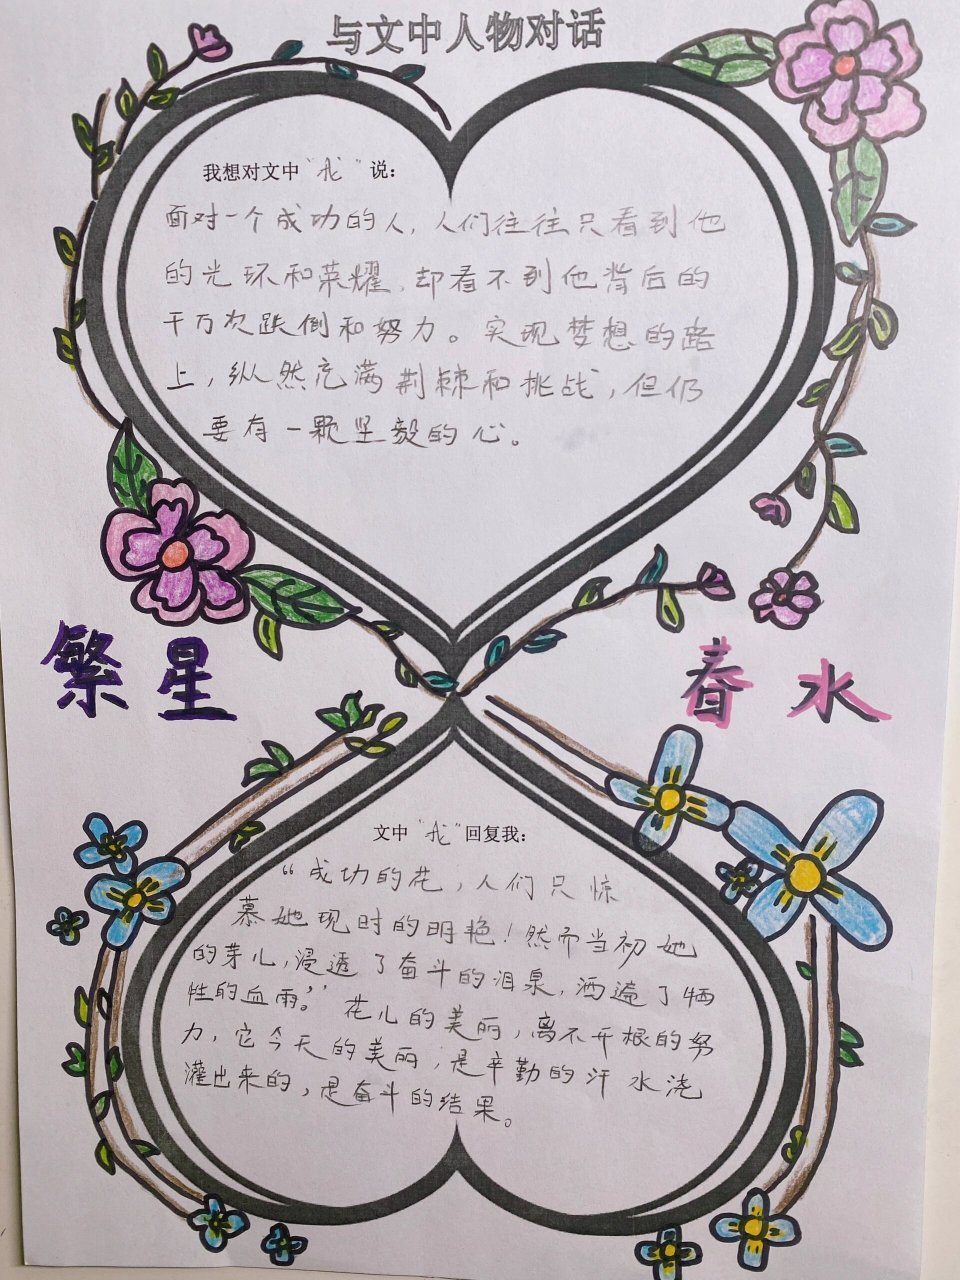 与文中人物对话
我想对文中“我”说：
面对一个成功的人，人们往往只看到他
的光环和荣耀，却看不到他背后的
千万次跌倒和努力。实现梦想的路
上，纵然充满荆棘和挑战，但仍
要有一颗坚毅的心。
繁星
春水
文中“我”回复我：
“成功的花，人们只惊
慕她现时的明艳！然而当初她
的芽儿，浸透了奋斗的泪泉，洒遍了牺
牲的血雨。”花儿的美丽，离不开根的努
力，它今天的美丽，是辛勤的汗水浇
灌出来的，是奋斗的结果。